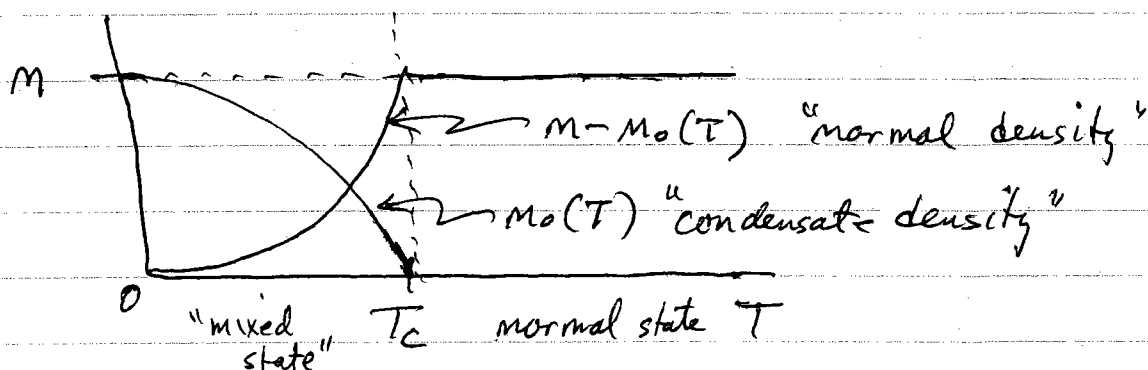 n
n-n₀(T) "normal density"
n₀(T) "condensate density"
0
"mixed state"
Tc
normal state
T